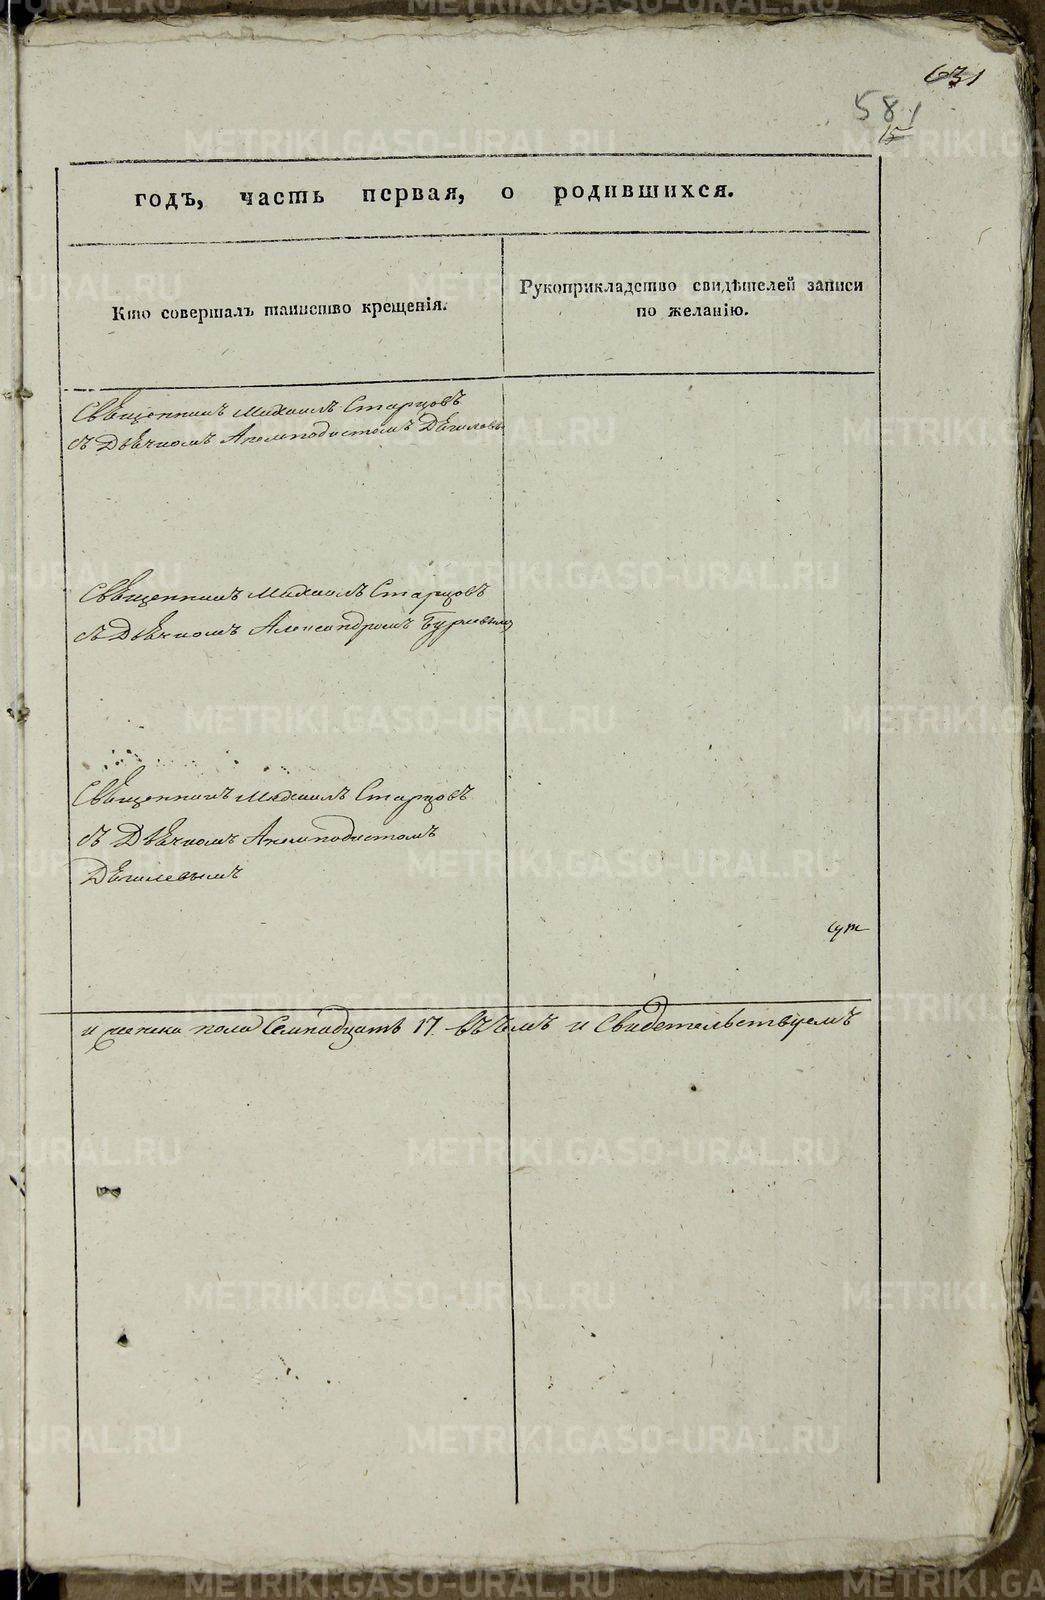 631
581
15
годъ, часть первая, о родившихся.
Кто совершалъ таинство крещенія.
Рукоприкладство свидѣтелей записи
по желанію.
Священникъ Михаилъ Старцовъ
съ Дьячкомъ Акемподистомъ
Священникъ Михаилъ Старцовъ
съ Дьячкомъ Александромъ
Священникъ Михаилъ Старцовъ
съ Дьячкомъ Акемподистомъ
пола Семнадцать 17. въ чемъ и Свидетельствуемъ
METRIKI.GASO-URAL.RU